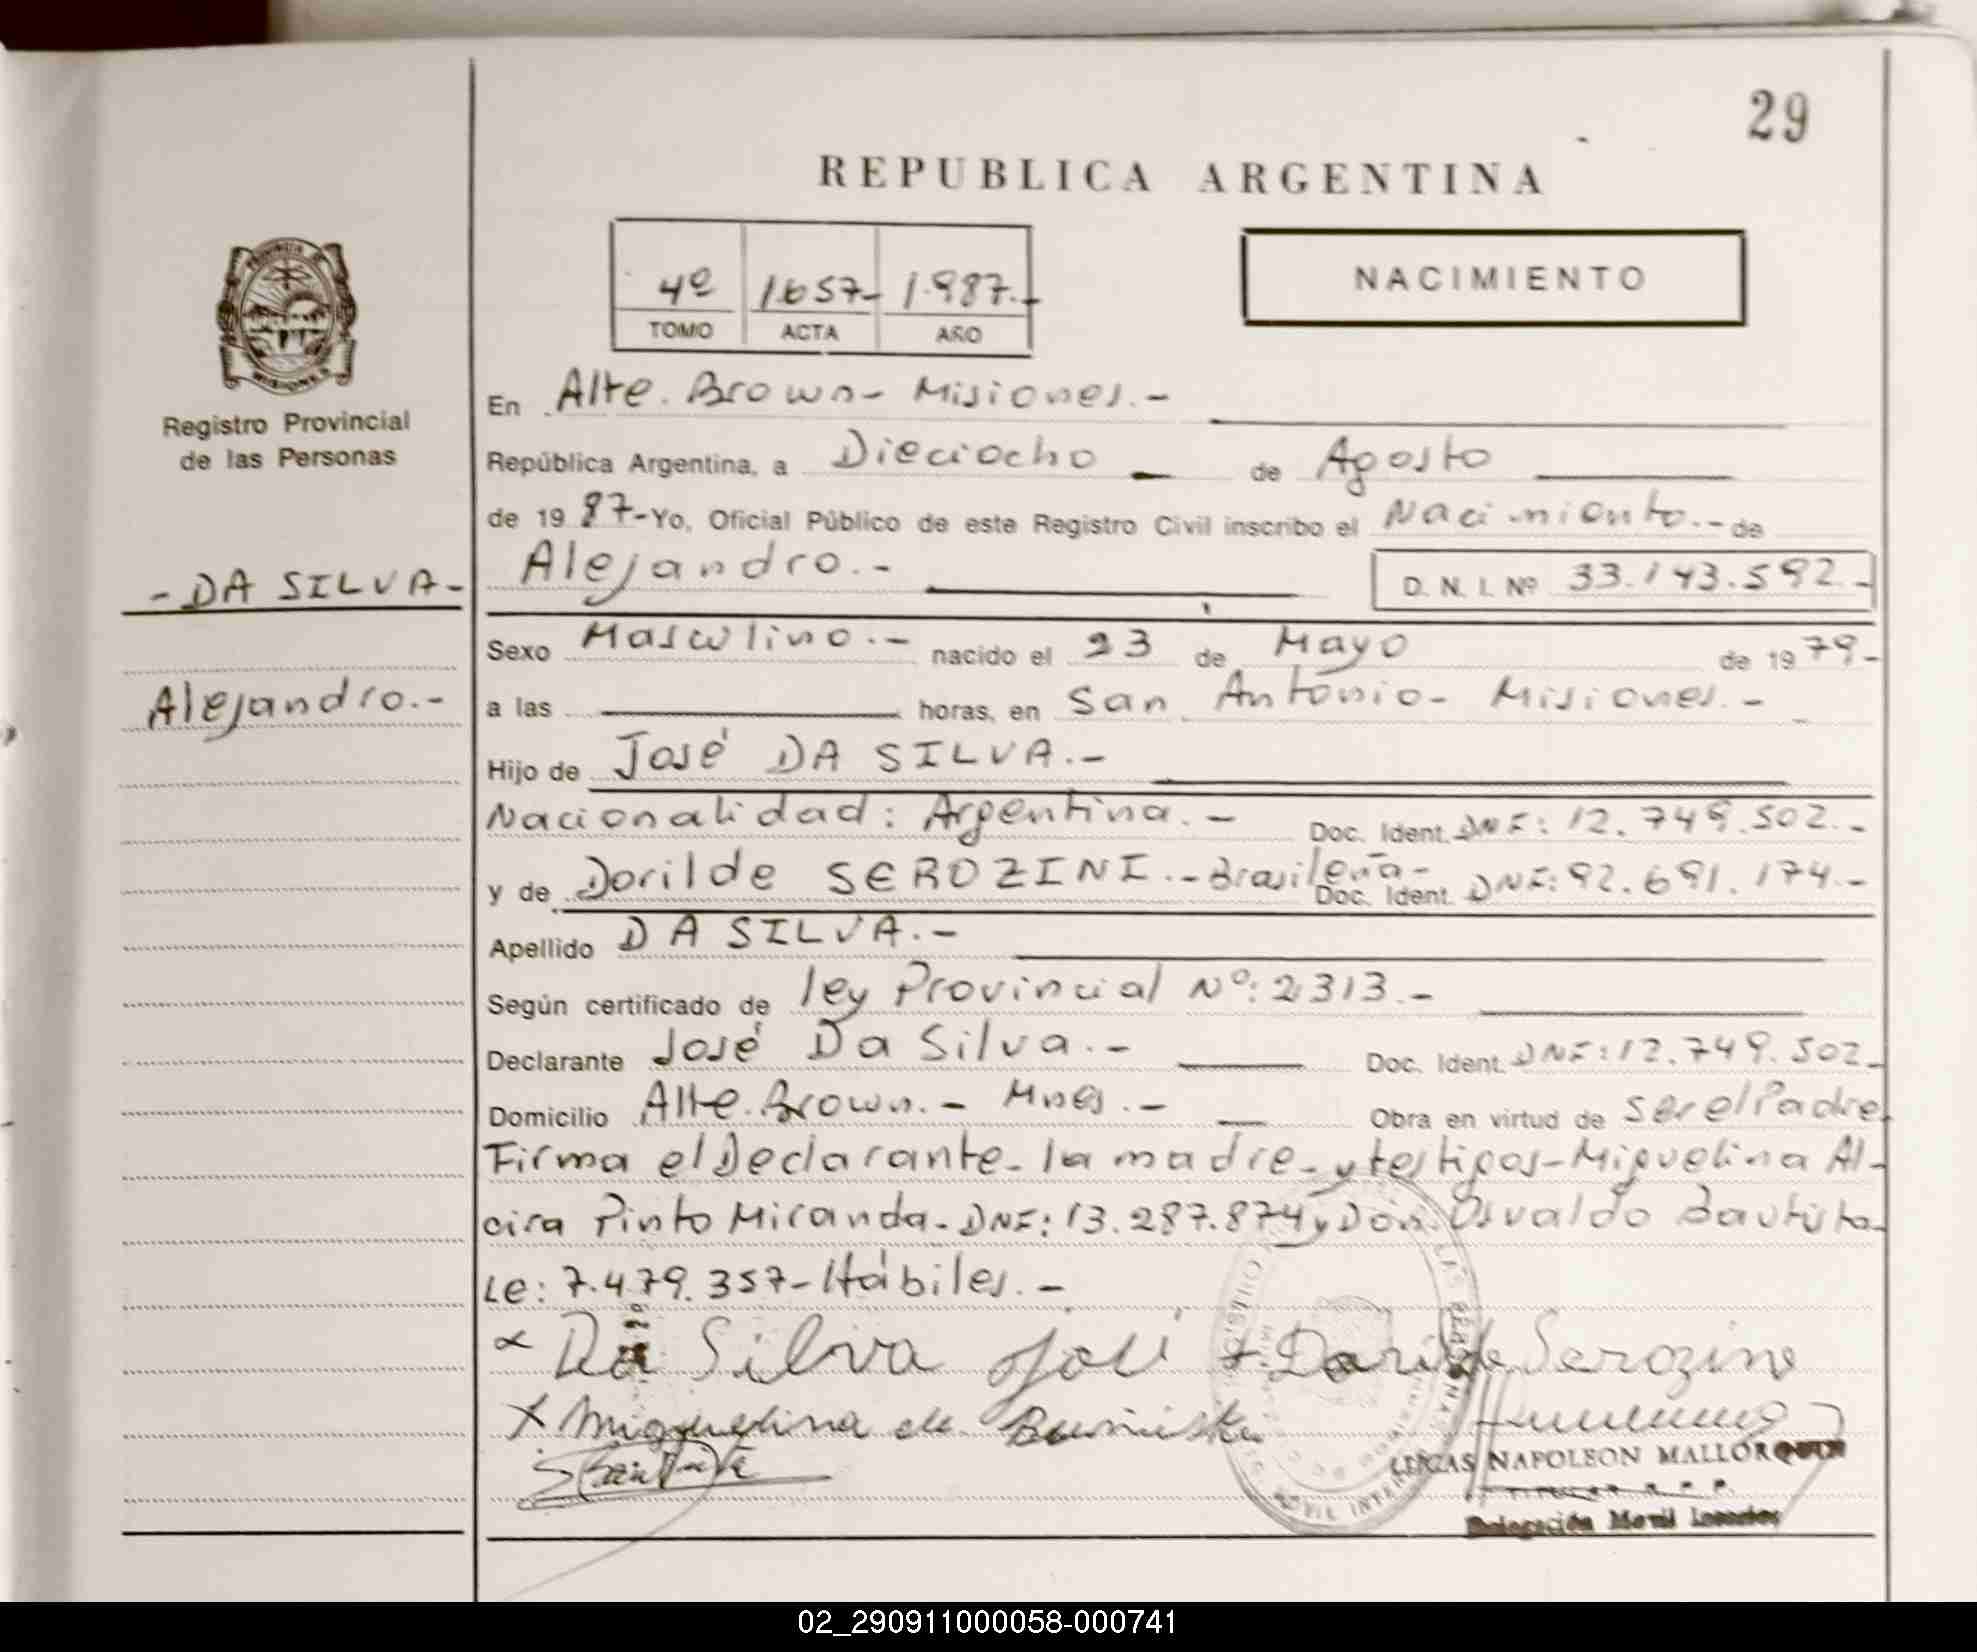 29
REPUBLICA ARGENTINA
4º 1.657- 1.987.-
TOMO ACTA AÑO
NACIMIENTO
PROVINCIA DE MISIONES
Registro Provincial
de las Personas
- DA SILVA -
Alejandro.-
En Alte. Brown- Misiones.-
República Argentina, a Dieciocho de Agosto
de 19 87-Yo, Oficial Público de este Registro Civil inscribo el Nacimiento.- de
Alejandro.- D. N. I. Nº 33.143.592.-
Sexo Masculino.- nacido el 23 de Mayo de 19 79-
a las horas, en San Antonio- Misiones.-
Hijo de José DA SILVA.-
Nacionalidad: Argentina.- Doc. Ident. DNI: 12.749.502.-
y de Dorilde SEROZINI.-Brasileña- Doc. Ident. DNI: 92.691.174.-
Apellido DA SILVA.-
Según certificado de ley Provincial Nº: 2313.-
Declarante José Da Silva.- Doc. Ident. DNI: 12.749.502-
Domicilio Alte. Brown.- Mnes.- Obra en virtud de ser el Padre.
Firma el Declarante- la madre- y testigos- Miguelina Al-
cira Pinto Miranda- DNI: 13.287.874 y Don Osvaldo Bautista-
Le: 7.479.357- Hábiles.-
x Da Silva José x Dorilde Serozini
x Miguelina de
LUCAS NAPOLEON MALLORQUIN
TITULAR R. P.
Delegación Movil
02_290911000058-000741